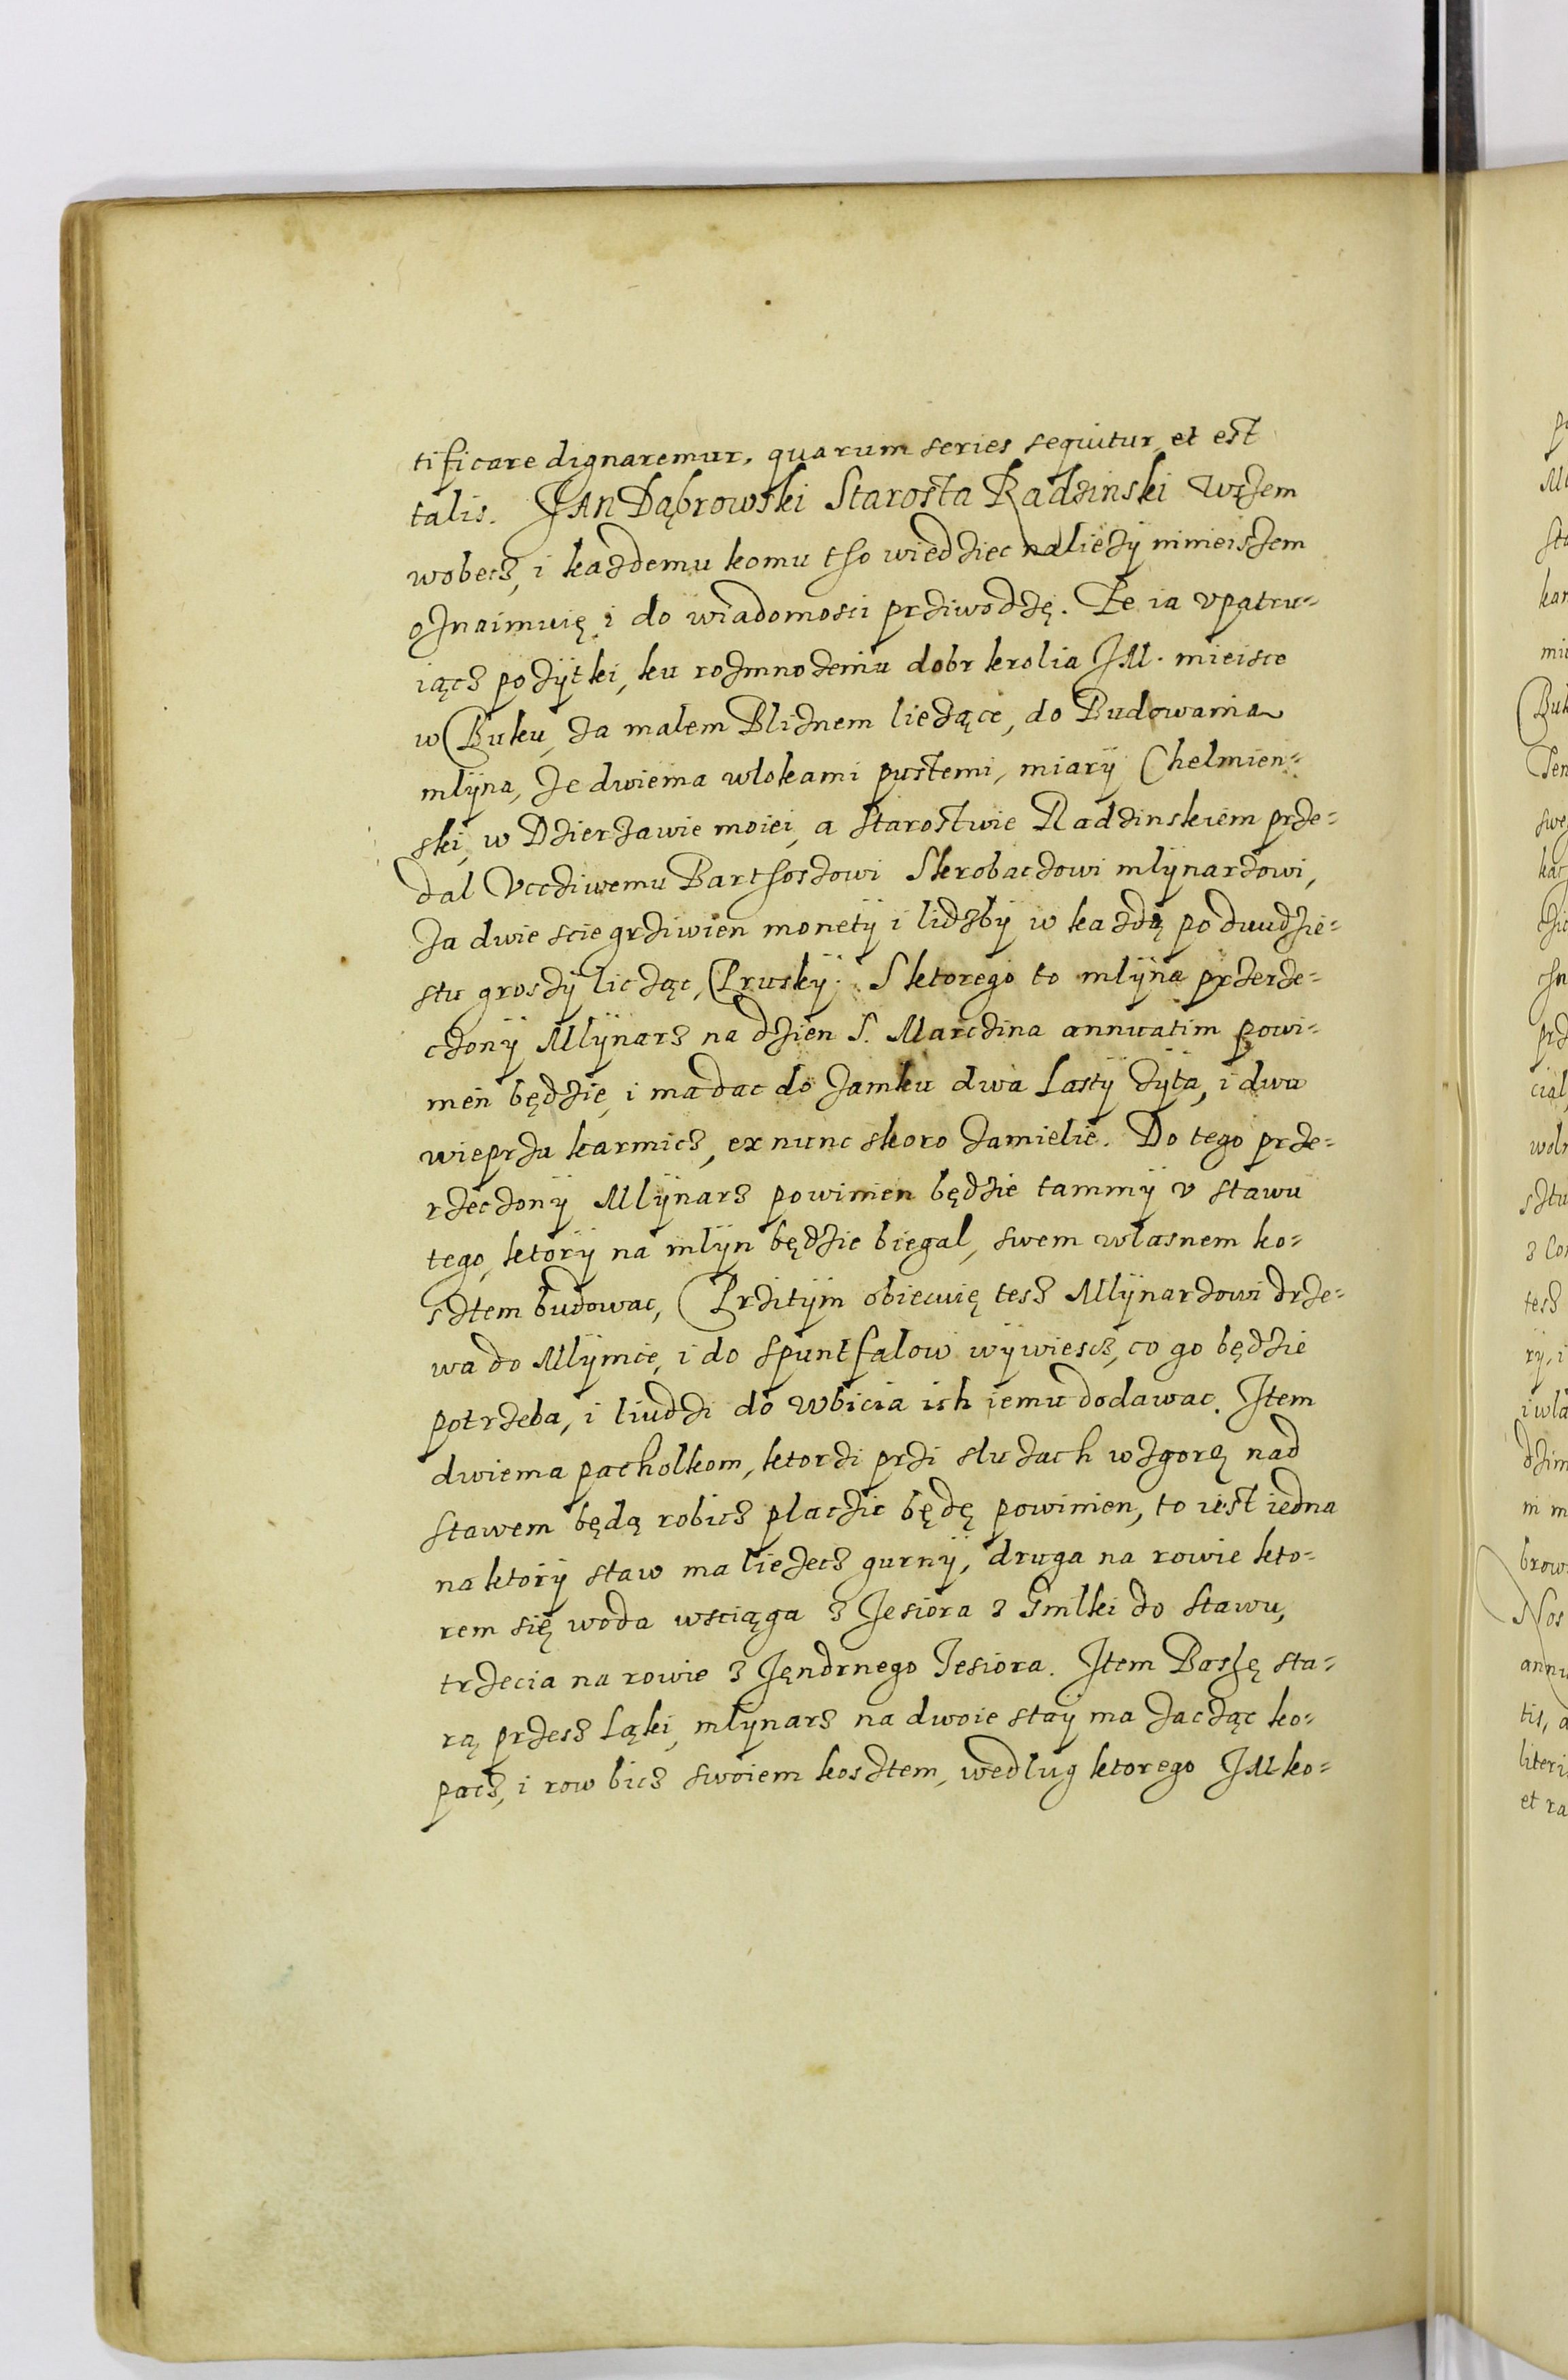 tificare dignaremur, quarum series sequitur, et est
talis. JAn Dąbrowski Starosta Radzinski wszem
wobecz, i kazdemu komu tho wiedziec naliezÿninieiszem
oznaimuię i do wiadomosci prziwodzę. Ze ia vpatru=
iącz pozÿtki, ku rozmnozeniu dobr krolia JM. mieisce
w Buku, za malem Bliznem liezące, do Budowania
mlÿna, ze dwiema wlokami pustemi, miarÿ Chelmien=
ski, w Dzierzawie moiei, a starostwie Radzinskiem prze=
dal Vcciwemu Barthoszowi Skrobaczowi mlÿnarzowi,
za dwie scie grziwien monetÿ i lidzbÿ w kazdą po dwudzie=
stu groszÿ licząc, Pruskÿ. S ktorego to mlÿna przerze=
czonÿ Mlÿnarz na dzien S. Marczina annuatim powi=
nien będzie, i ma dac do zamku dwa Lastÿ zÿta, i dwu
wieprzu karmicz, ex nunc skoro zamielie. Do tego prze=
rzeczonÿ Mlÿnarz powinien będzie tammÿ v stawu
tego, ktorÿ na mlÿn będzie biegal, swem wlasnem ko=
sztem budowac, Przitÿm obiecuię tesz Mlÿnarzowi drze=
wa do Mlÿnice, i do spuntfalow wÿwiescz, co go będzie
potrzeba, i liudzi do wbicia ich iemu dodawac. Item
dwiema pacholkom, ktorzi przi sluzach wzgorę nad
stawem będą robicz placzic będę powinien, to iest iedna
na ktorÿ staw ma liezecz gurnÿ, druga na rowie kto=
rem się woda wsciąga z Jesiora z Gmilki do stawu,
trzecia na rowie z Jęndrnego Jesiora. Item Boszę sta=
rą przesz Ląki, mlÿnarz na dwoie staÿ ma zacząc ko=
pacz, i row bicz swoiem kosztem, wedlug ktorego JM ko=